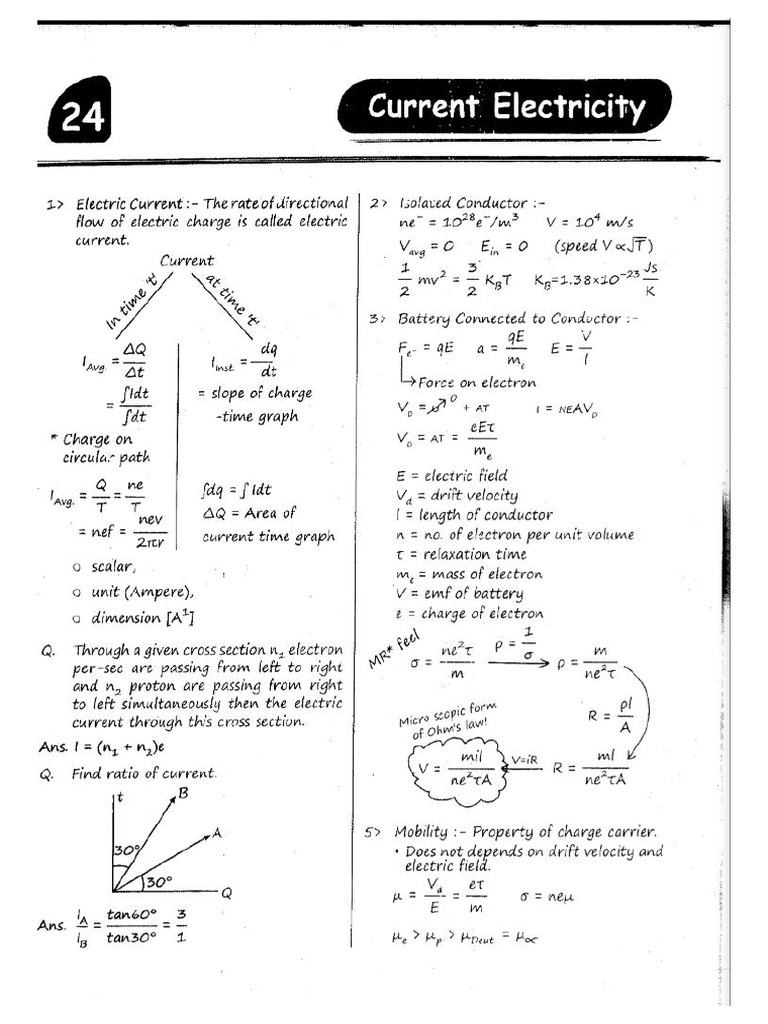 24
Current Electricity
1> Electric Current :- The rate of directional
flow of electric charge is called electric
current.
Current
In time 't'
at time 't'
I_Avg. = ΔQ/Δt
= ∫Idt/∫dt
* Charge on
circular path
I_Avg. = Q/T = ne/T
= nef = nev/2πr
I_Inst. = dq/dt
= slope of charge
-time graph
∫dq = ∫Idt
ΔQ = Area of
current time graph
o scalar,
o unit (Ampere),
o dimension [A¹]
Q. Through a given cross section n₂ electron
per-sec are passing from left to right
and n₂ proton are passing from right
to left simultaneously then the electric
current through this cross section.
Ans. I = (n₁ + n₂)e
Q. Find ratio of current.
t
B
A
30°
30°
Q
Ans. I_A/I_B = tan60°/tan30° = 3/1
2> Isolated Conductor :-
ne⁻ = 10²⁸e⁻/m³ V = 10⁴ m/s
V_avg = 0 E_in = 0 (speed V ∝ √T)
1/2 mv² = 3/2 K_B T K_B=1.38×10⁻²³ Js/K
3> Battery Connected to Conductor :-
F_e⁻ = qE a = qE/m_e E = V/l
Force on electron
V_D = u⁰ + AT I = NEAV_D
V_D = AT = eEτ/m_e
E = electric field
V_d = drift velocity
l = length of conductor
n = no. of electron per unit volume
τ = relaxation time
m_e = mass of electron
V = emf of battery
e = charge of electron
MR* feel
σ = ne²τ/m ρ = 1/σ ρ = m/ne²τ
R = ρl/A
Micro scopic form
of Ohm's law!
V = mil/ne²τA V=iR R = ml/ne²τA
5> Mobility :- Property of charge carrier.
• Does not depends on drift velocity and
electric field.
μ = V_d/E = eτ/m σ = neμ
μ_e > μ_p > μ_Deut = μ_∝